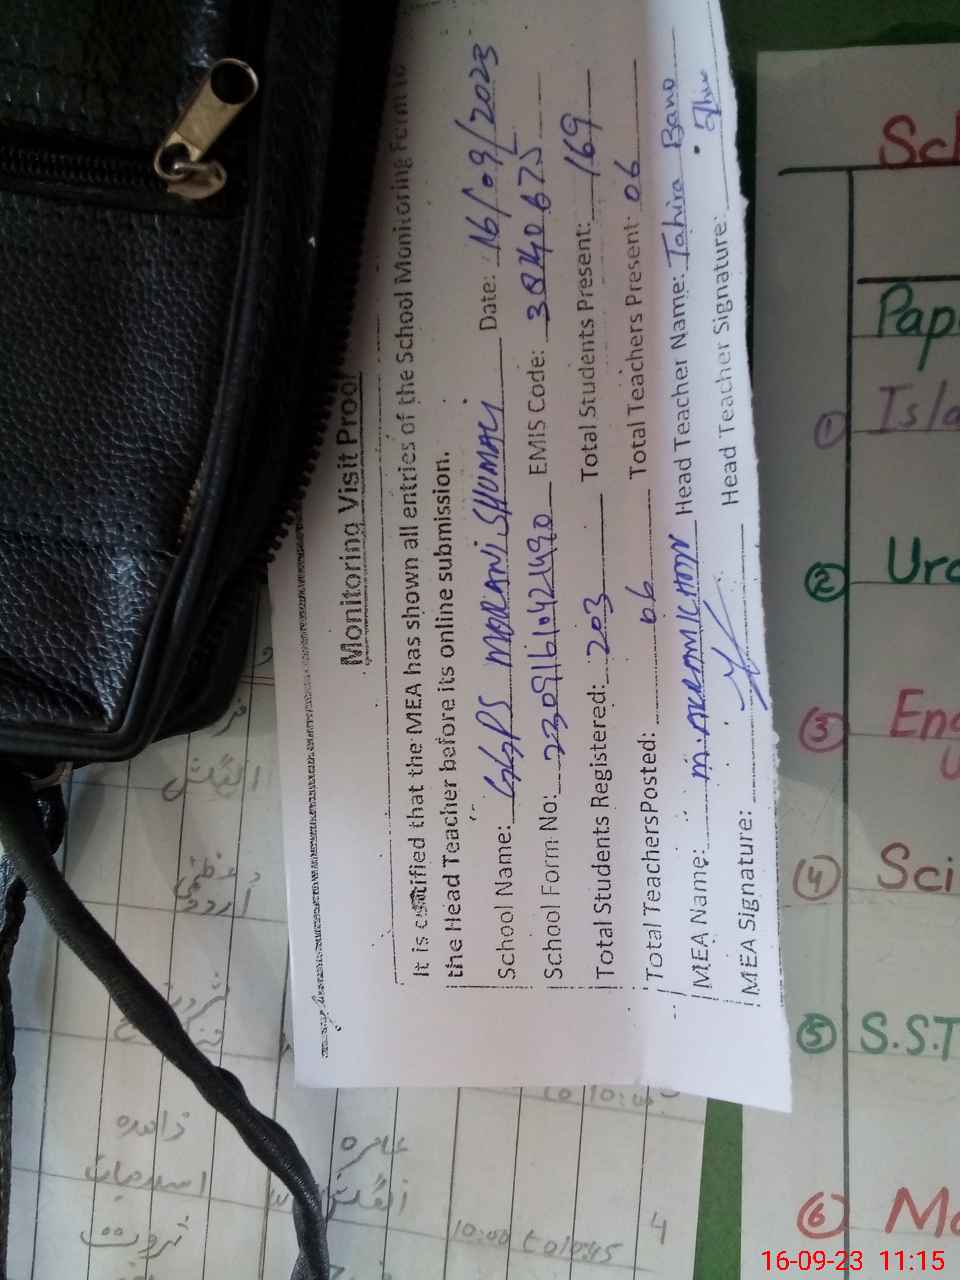 Monitoring Visit Proof
It is certified that the MEA has shown all entries of the School Monitoring Form to
the Head Teacher before its online submission.
School Name: GGPS MORANI SHUMALI Date: 16/09/2023
School Form No: EMIS Code:
Total Students Registered: 203 Total Students Present: 169
Total TeachersPosted: 06 Total Teachers Present: 06
MEA Name: Head Teacher Name: Tahira Bano
MEA Signature: Head Teacher Signature:
Sc
Pap
① Isla
② Urd
③ Eng
U
④ Sci
⑤ S.ST
⑥ Ma
زاھدہ
عامرہ
اسلامیات
ثروت
10:00 to 10:45
4
16-09-23 11:15